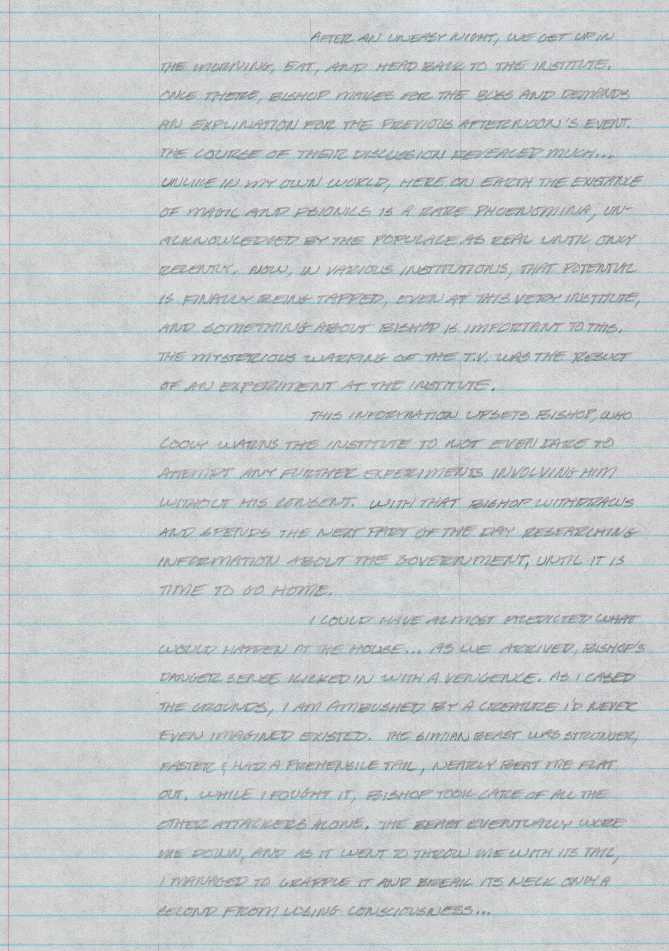 AFTER AN UNEASY NIGHT, WE GET UP IN
THE MORNING, EAT, AND HEAD BACK TO THE INSTITUTE.
ONCE THERE, BISHOP MAKES FOR THE BOSS AND DEMANDS
AN EXPLINATION FOR THE PREVIOUS AFTERNOON'S EVENT.
THE COURSE OF THEIR DISCUSSION REVEALED MUCH...
UNLIKE IN MY OWN WORLD, HERE ON EARTH THE EXISTANCE
OF MAGIC AND PSIONICS IS A RARE PHOENOMINA, UN-
ACKNOWLEDGED BY THE POPULACE AS REAL UNTIL ONLY
RECENTLY. NOW, IN VARIOUS INSTITUTIONS, THAT POTENTIAL
IS FINALLY BEING TAPPED, EVEN AT THIS VERY INSTITUTE,
AND SOMETHING ABOUT BISHOP IS IMPORTANT TO THIS.
THE MYSTERIOUS WARPING OF THE T.V. WAS THE RESULT
OF AN EXPERIMENT AT THE INSTITUTE.
THIS INFORMATION UPSETS BISHOP, WHO
COOLY WARNS THE INSTITUTE TO NOT EVEN DARE TO
ATTEMPT ANY FURTHER EXPERIMENTS INVOLVING HIM
WITHOUT HIS CONSENT. WITH THAT BISHOP WITHDRAWS
AND SPENDS THE NEXT PART OF THE DAY RESEARCHING
INFORMATION ABOUT THE GOVERNMENT, UNTIL IT IS
TIME TO GO HOME.
I COULD HAVE ALMOST PREDICTED WHAT
WOULD HAPPEN AT THE HOUSE... AS WE ARRIVED, BISHOP'S
DANGER SENSE KICKED IN WITH A VENGENCE. AS I CASED
THE GROUNDS, I AM AMBUSHED BY A CREATURE I'D NEVER
EVEN IMAGINED EXISTED. THE SIMIAN BEAST WAS STRONGER,
FASTER & HAD A PREHENSILE TAIL, NEARLY BEAT ME FLAT
OUT. WHILE I FOUGHT IT, BISHOP TOOK CARE OF ALL THE
OTHER ATTACKERS ALONE. THE BEAST EVENTUALLY WORE
ME DOWN, AND AS IT WENT TO THROW ME WITH ITS TAIL,
I MANAGED TO GRAPPLE IT AND BREAK ITS NECK ONLY A
SECOND FROM LOSING CONSCIOUSNESS...